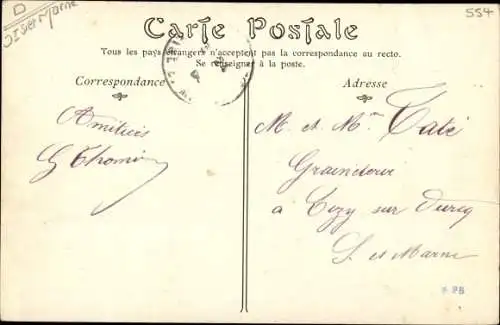 D
S et Marne
554
Carte Postale
Tous les pays étrangers n'acceptent pas la correspondance au recto.
Se renseigner à la poste.
Correspondance
Adresse
Amitiés
G Thomin
M. et Mme Taté
Graineterie
a Lizy sur Ourcq
S. et Marne